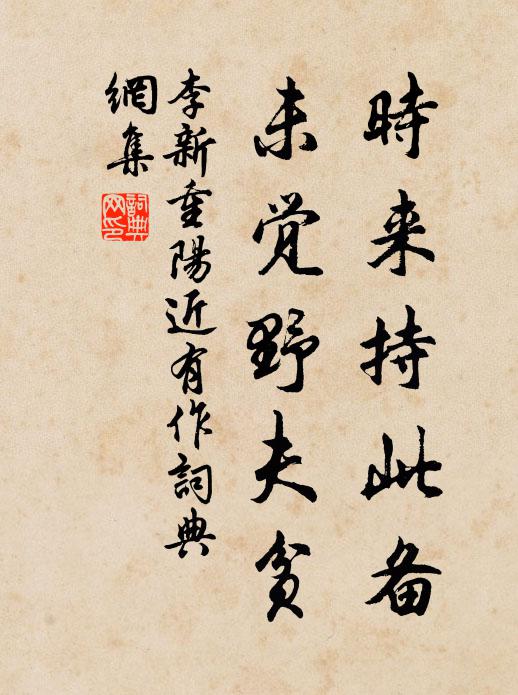 時来持此备
未觉野夫貧
李新重陽近有作詞典
網集
詞典
网印